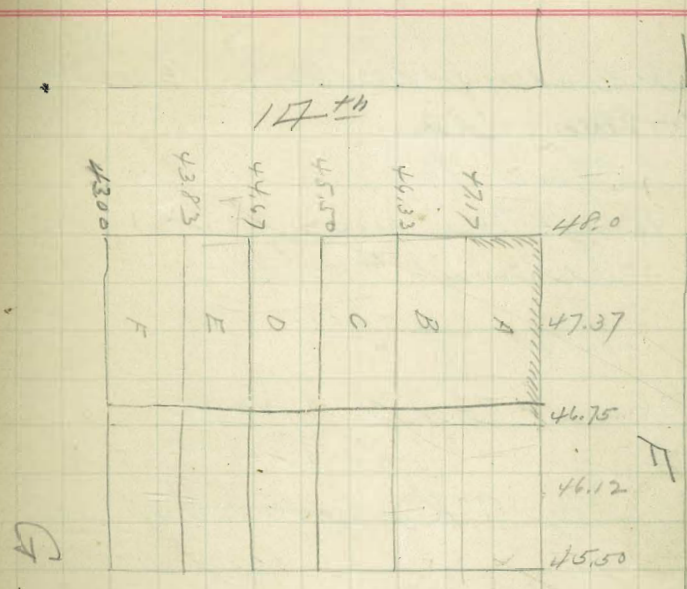 17th
4300
43.83
44.67
45.50
46.33
47.17
48.0
F
E
D
C
B
A
47.37
46.75
46.12
45.50
F
G